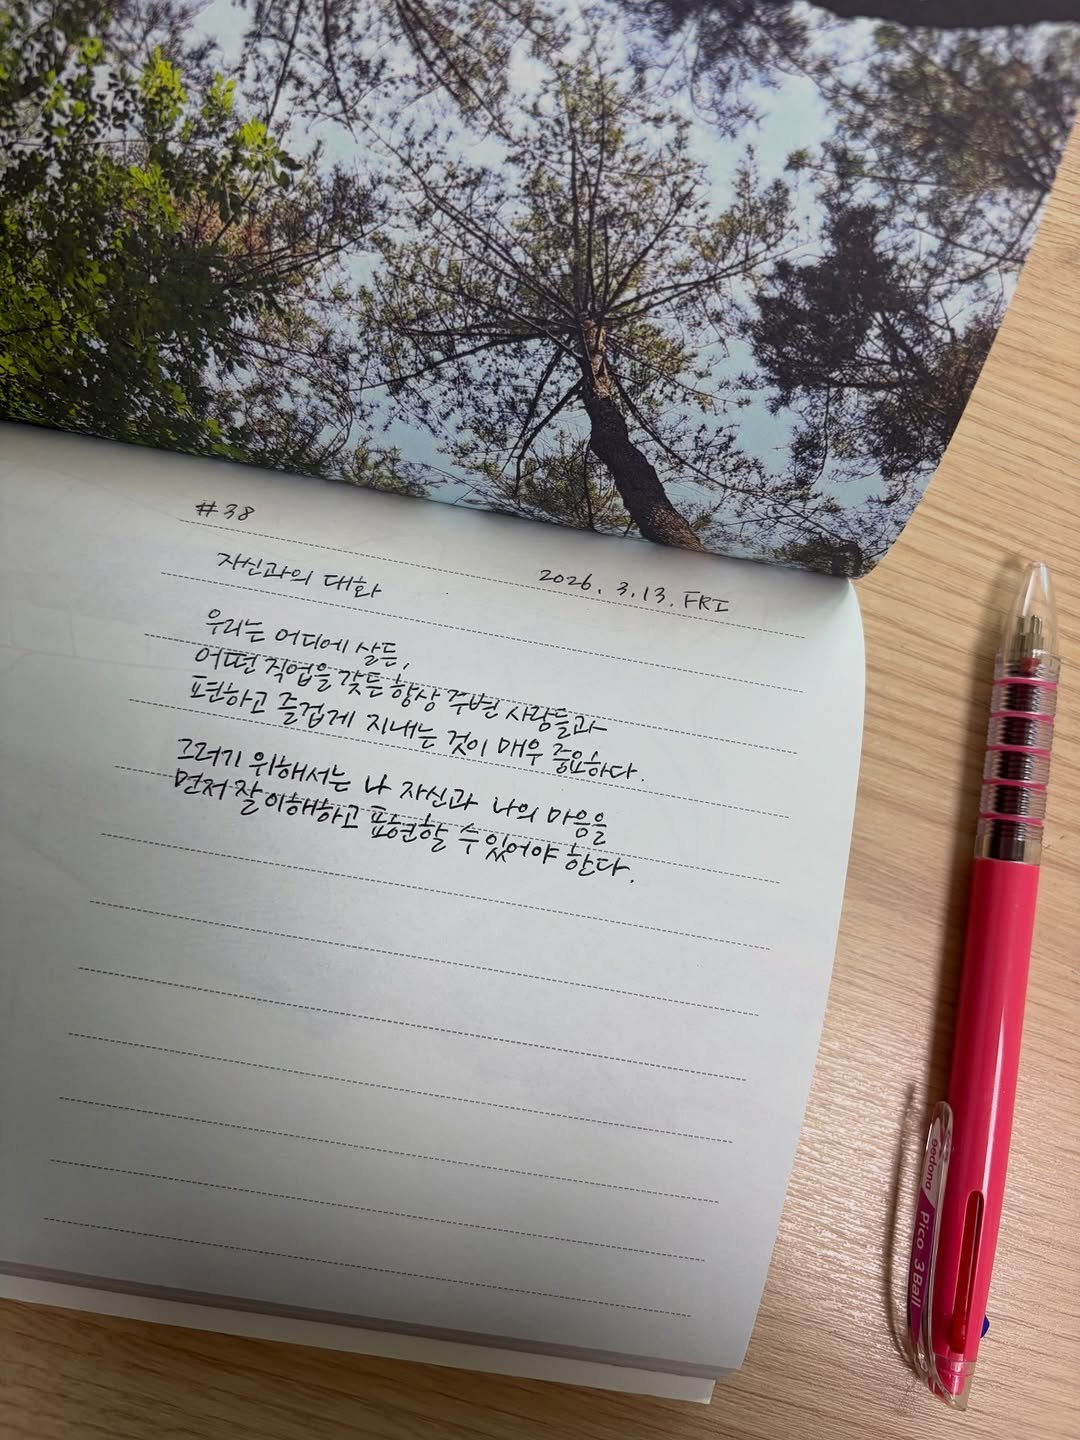 #38
자신과의 대화
2026. 3. 13. FRI
우리는 어디에 살든,
어떤 직업을 갖든 항상 주변 사람들과
편하고 즐겁게 지내는 것이 매우 중요하다.
그러기 위해서는 나 자신과 나의 마음을
먼저 잘 이해하고 표현할 수 있어야 한다.
nedona Pico 3 Ball